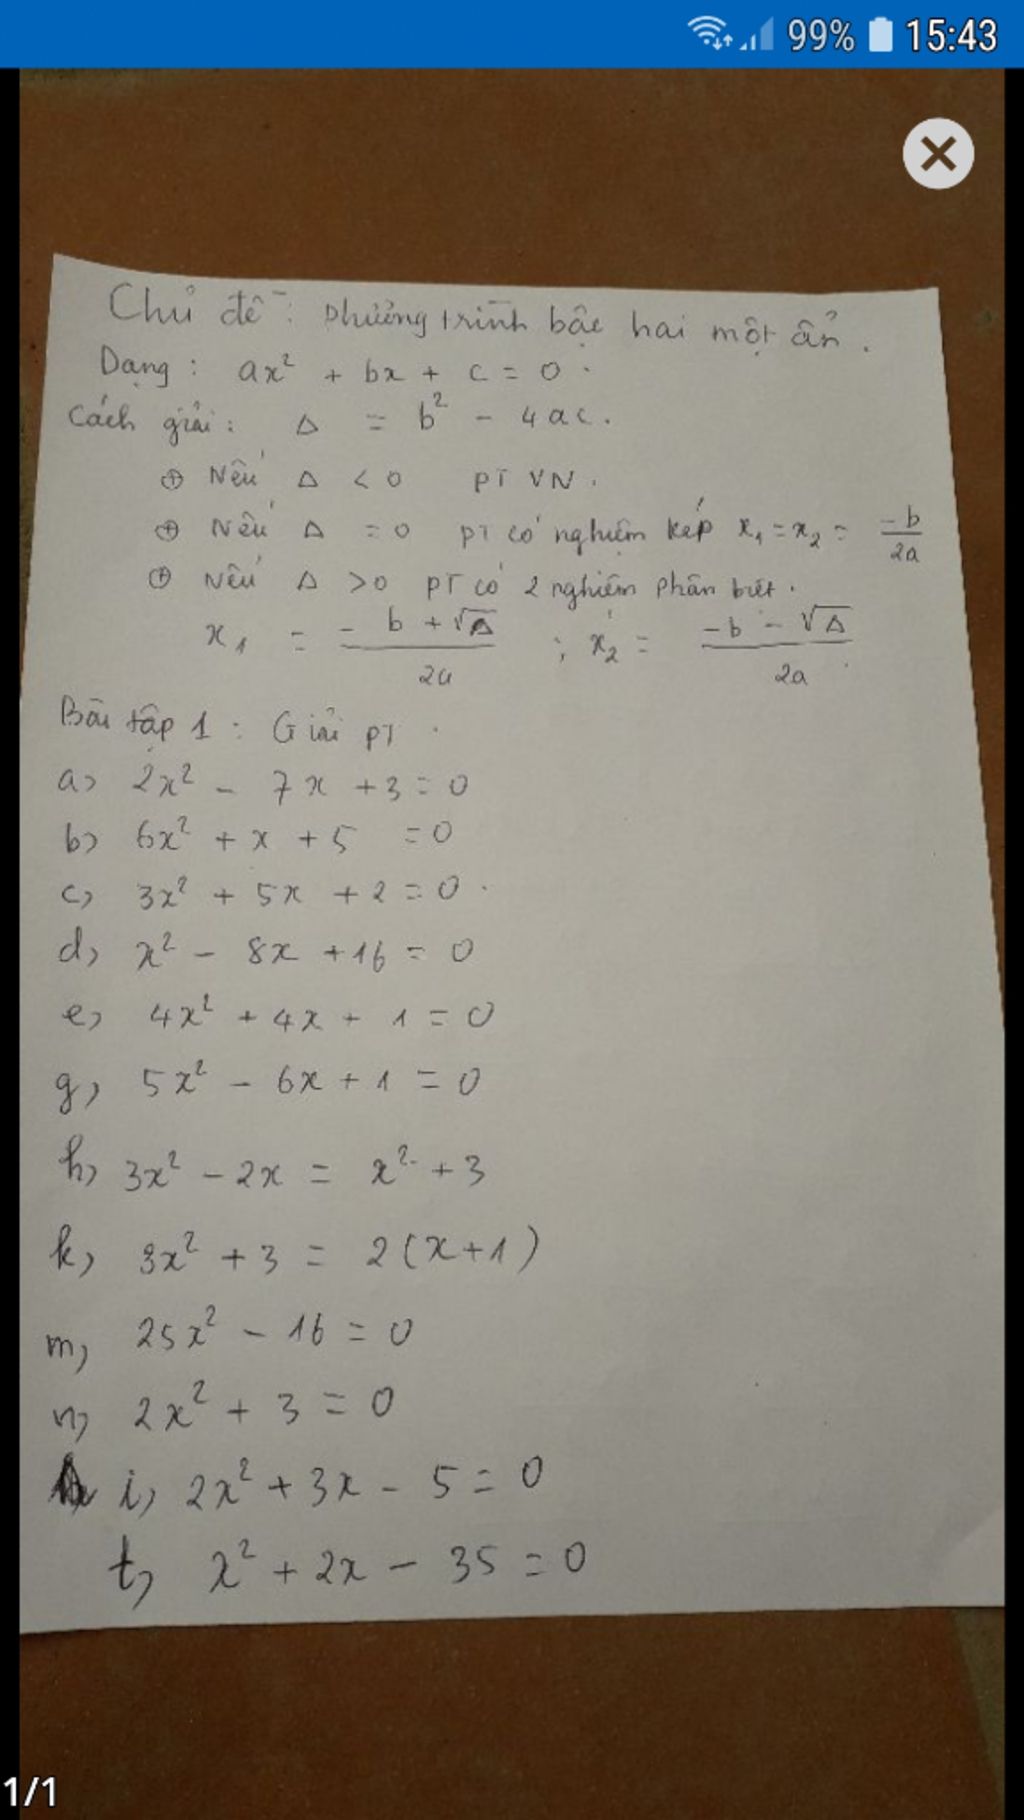 99% 15:43
Chủ đề: phương trình bậc hai một ẩn.
Dạng: ax² + bx + c = 0.
Cách giải: Δ = b² - 4ac.
⊕ Nếu Δ < 0 PT VN.
⊕ Nếu Δ = 0 PT có nghiệm kép x₁ = x₂ = -b/2a
⊕ Nếu Δ > 0 PT có 2 nghiệm phân biệt.
x₁ = (-b + √Δ)/2a ; x₂ = (-b - √Δ)/2a
Bài tập 1: Giải PT.
a) 2x² - 7x + 3 = 0
b) 6x² + x + 5 = 0
c) 3x² + 5x + 2 = 0.
d) x² - 8x + 16 = 0
e) 4x² + 4x + 1 = 0
g) 5x² - 6x + 1 = 0
h) 3x² - 2x = x² + 3
k) 3x² + 3 = 2(x+1)
m) 25x² - 16 = 0
n) 2x² + 3 = 0
i) 2x² + 3x - 5 = 0
t) x² + 2x - 35 = 0
1/1